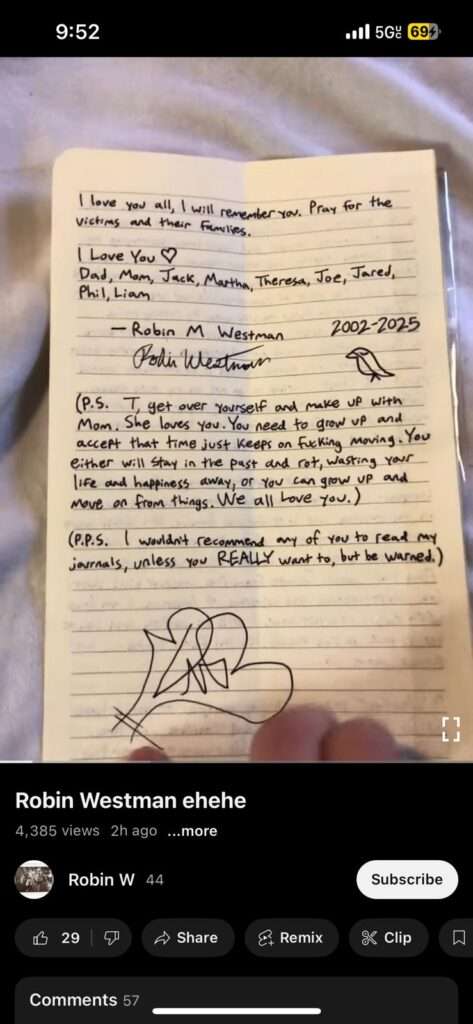 9:52
5G UC 69
I love you all, I will remember you. Pray for the
victims and their families.
I Love You ♡
Dad, Mom, Jack, Martha, Theresa, Joe, Jared,
Phil, Liam
— Robin M Westman 2002-2025
Robin Westman
(P.S. T, get over yourself and make up with
Mom. She loves you. You need to grow up and
accept that time just keeps on fucking moving. You
either will stay in the past and rot, wasting your
life and happiness away, or you can grow up and
move on from things. We all love you.)
(P.P.S. I wouldn't recommend any of you to read my
journals, unless you REALLY want to, but be warned.)
Robin Westman ehehe
4,385 views 2h ago ...more
Robin W 44
Subscribe
29
Share
Remix
Clip
Comments 57